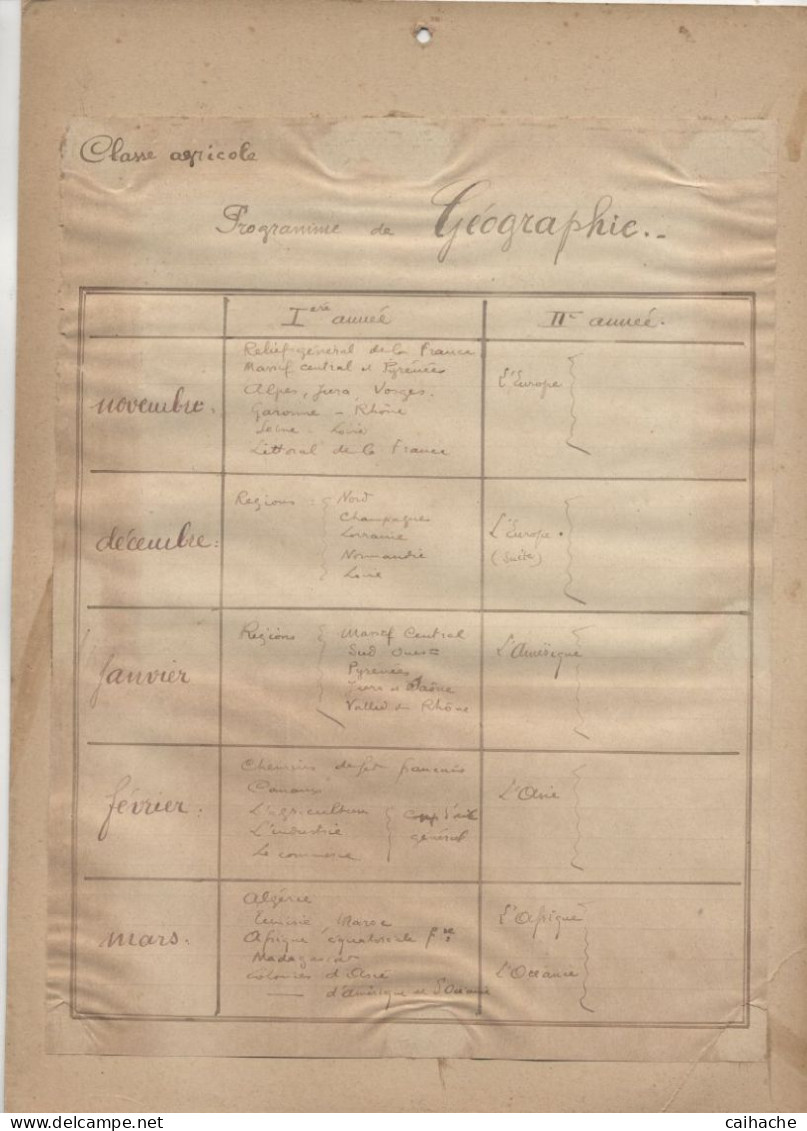 Classe agricole
Programme de Géographie.-
Iere année
IIe année.
novembre.
Relief général de la France
Massif central et Pyrénées
Alpes, Jura, Vosges.
Garonne - Rhône
Seine - Loire
Littoral de la France
L'Europe
décembre:
Régions : Nord
Champagnes
Lorraine
Normandie
Loire
L'Europe.
(suite)
Janvier
Régions Massif Central
Sud Ouest
Pyrénées
Jura et Saône
Vallée du Rhône
L'Amérique
février:
Chemins de fer français
Canaux
L'agriculture
L'industrie
Le commerce
coup d'œil
général
L'Asie
mars.
Algérie
Tunisie Maroc
Afrique équatoriale fse
Madagascar
Colonies d'Asie
— d'Amérique et d'Océanie
L'Afrique
L'Océanie
caihache